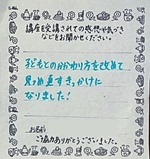 講座を受講されての感想や気づき
などをお聞かせください。
子どもとの関わり方を改めて
見つめ直すきっかけに
なりました！
お名前
ご協力ありがとうございました